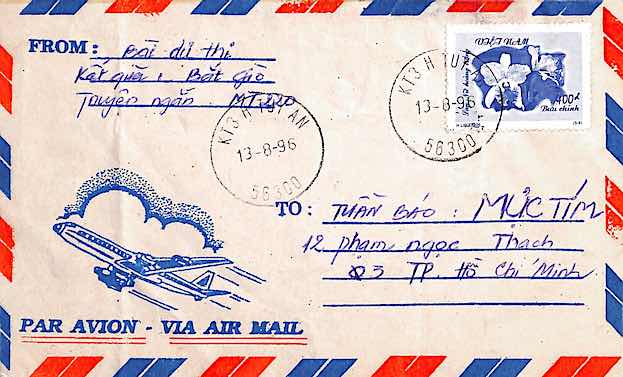 FROM: Bài dự thi
Kết quả: Bắt giò
Truyện ngắn MT220
VIỆT NAM
400đ
Bưu chính
KT3 H TUY AN
13-8-96
56300
KT3 H TUY
13-8-96
56300
TO: TUẦN BÁO: MỰC TÍM
12 Phạm Ngọc Thạch
Q3 TP. Hồ Chí Minh
PAR AVION - VIA AIR MAIL